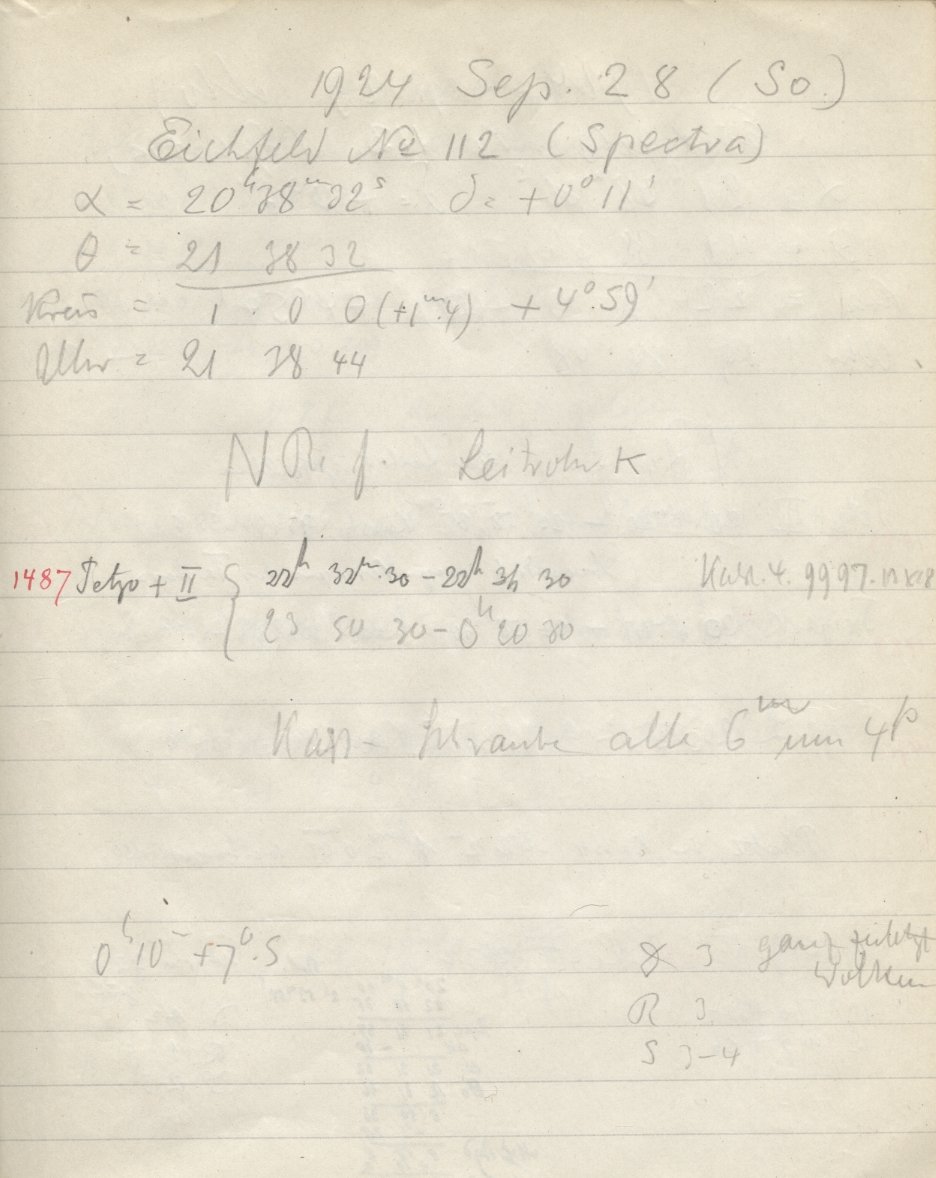 1924 Sep. 28 (So.)
Eichfeld No 112 (Spectra)
α = 20h 38m 32s δ = +0° 11'
θ = 21 38 32
Kreis = 1 0 0 (+1m.4) + 4°.59'
Uhr = 21 38 44
N R. f. Leitrohr K
1487 Petzv + II 22h 32m.30 - 22h 30
23 50 30 - 0h 20 30
Kass. 4.
Kass - Schraube alle 6m um 4p
0h 10m +7°.5
3 ganz zuletzt
Wolken
R 3
S 3-4